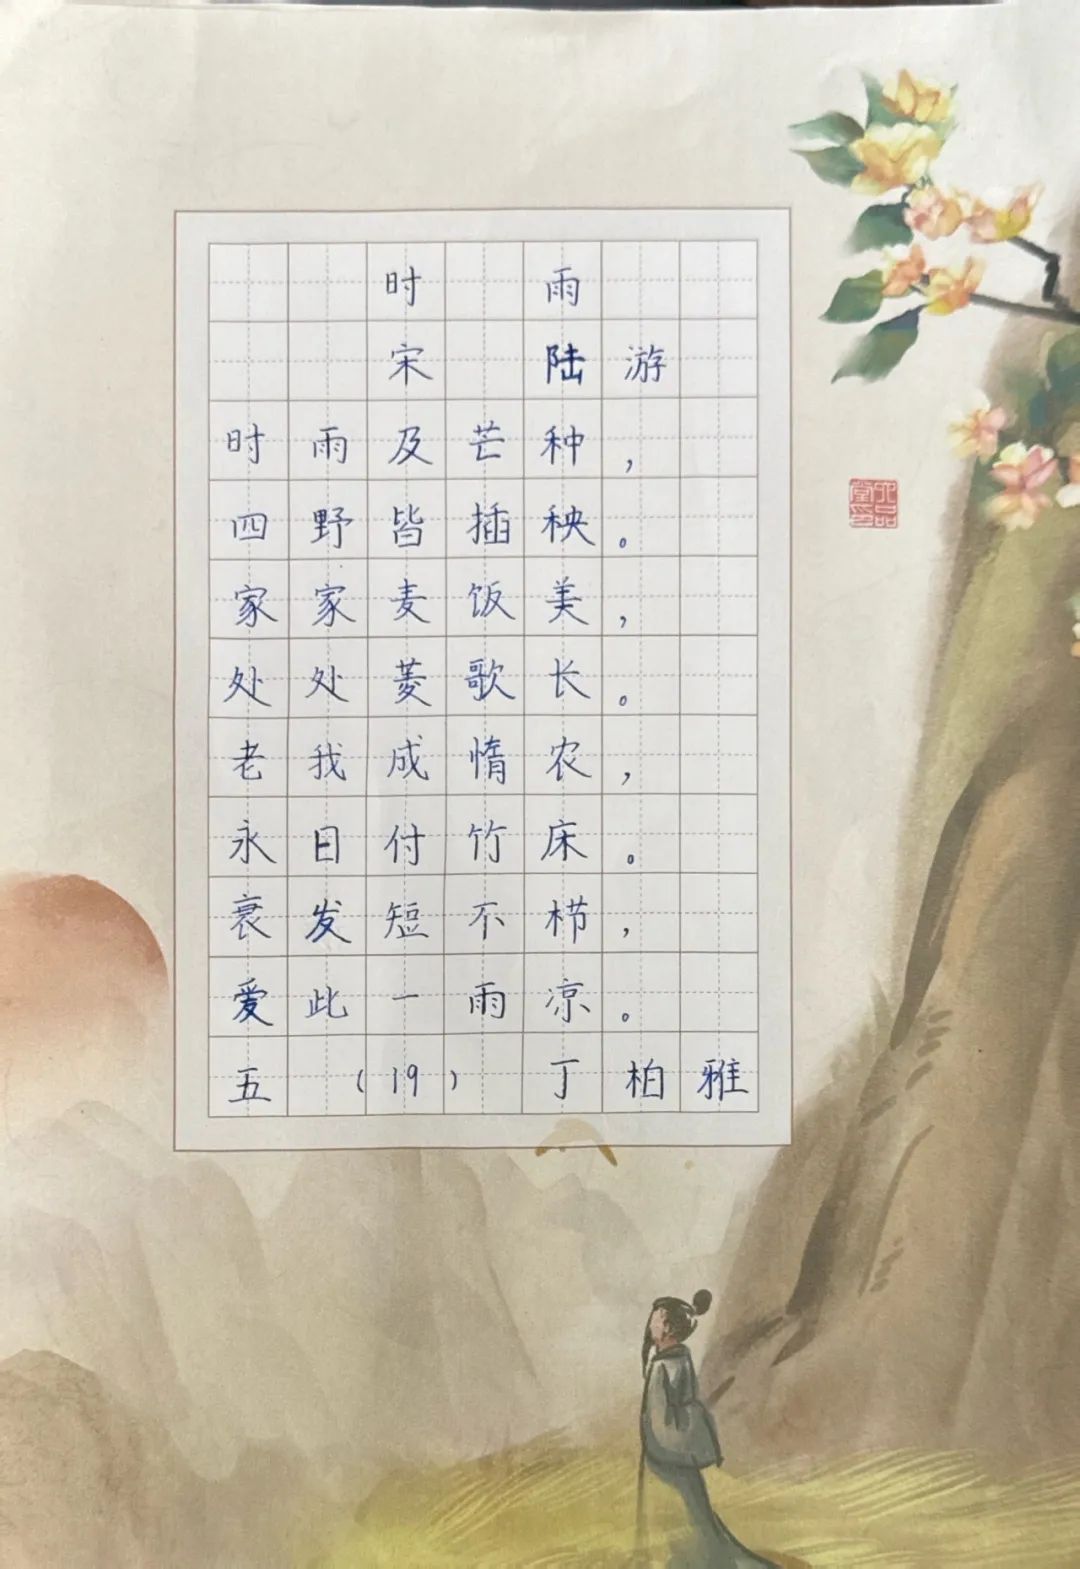 时 雨
宋 陆游
时雨及芒种，
四野皆插秧。
家家麦饭美，
处处菱歌长。
老我成惰农，
永日付竹床。
衰发短不栉，
爱此一雨凉。
五 （19） 丁柏雅